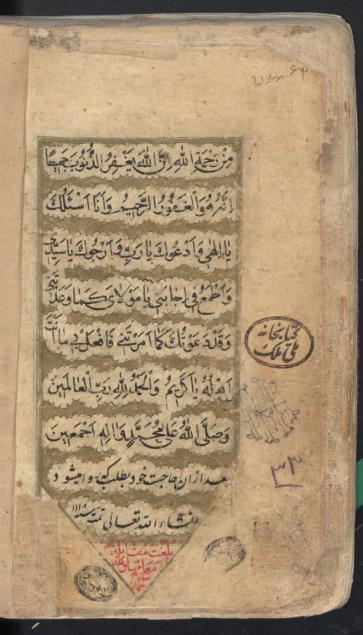 مِنْ رَحْمَةِ اللهِ اِنَّ اللهَ يَغْفِرُ الذُّنُوبَ جَمِيعًا
اِنَّهُ هُوَ الْغَفُورُ الرَّحِيمُ وَاَنَا اَسْئَلُكَ
يا اِلٰهِي وَاَدْعُوكَ يا رَبِّ وَاَرْجُوكَ يا سَيِّدِي
وَاَطْمَعُ فِي اِجابَتِي يا مَوْلايَ كَما وَعَدْتَنِي
وَقَدْ دَعَوْتُكَ كَما اَمَرْتَنِي فَافْعَلْ بِي ما اَنْتَ
اَهْلُهُ يا كَرِيمُ وَالْحَمْدُ لِلّٰهِ رَبِّ الْعالَمِينَ
وَصَلَّى اللهُ عَلى مُحَمَّدٍ وَآلِهِ اَجْمَعِينَ
بعد ازان حاجت خود بطلب که روا میشود
انشاء الله تعالی تمت سنه ۱۱۱۸
بلغت مقابلة
کتابخانه
ملی ملک
۳۳